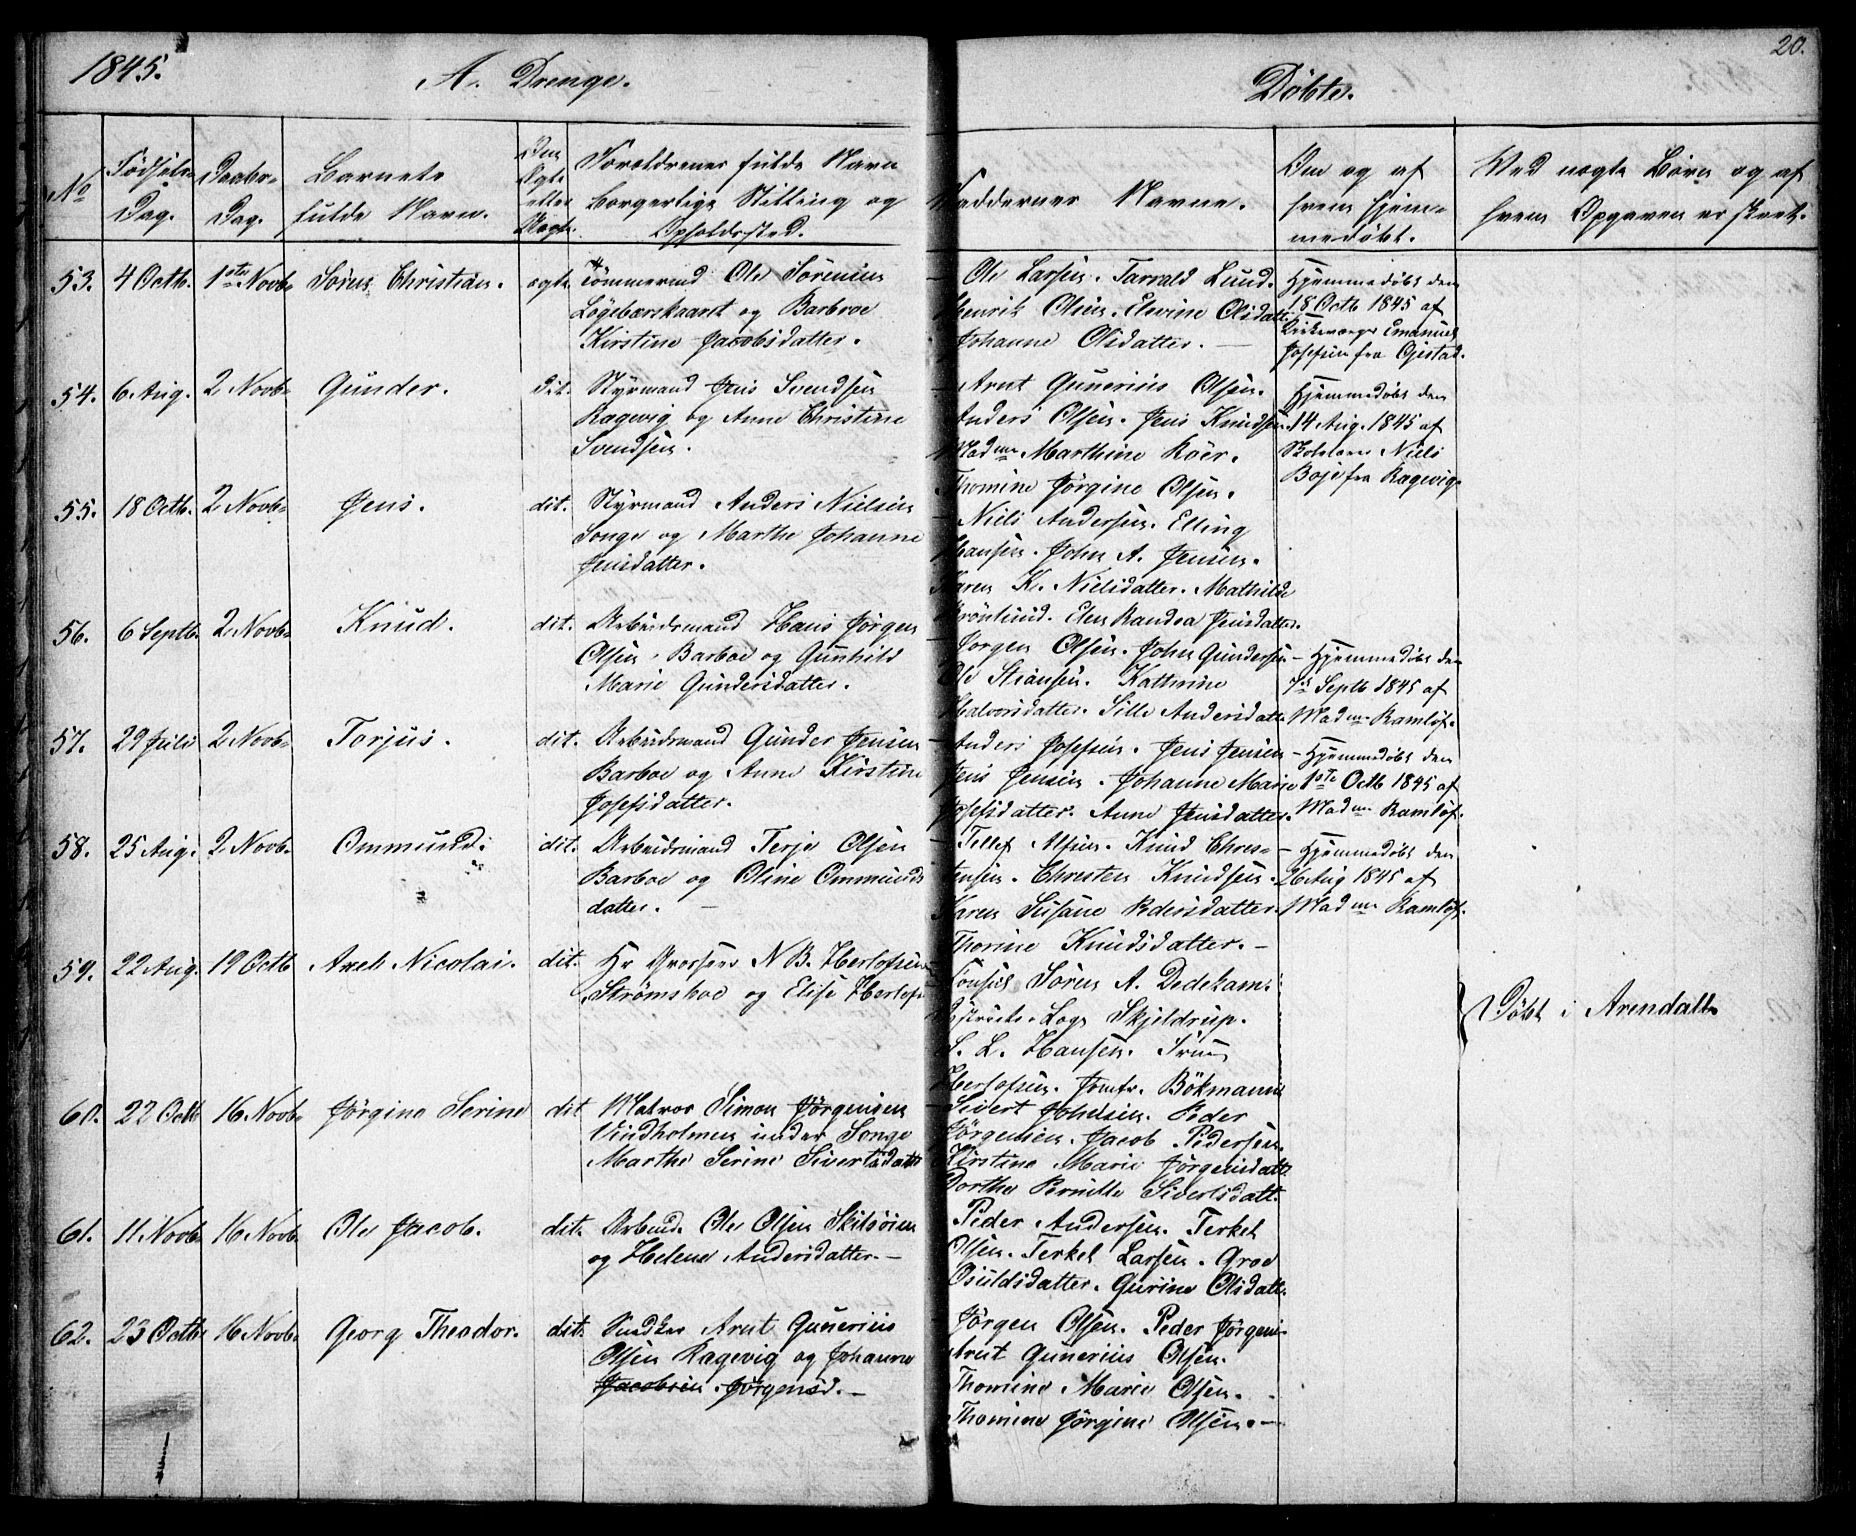 1845.
A. Drenge.
Døbte.
20.
No
Fødsels-
Dag.
Daabs-
Dag.
Barnets
fulde Navn.
Om
Ægte
eller
Uægte.
Forældrenes fulde Navn
Borgerlige Stilling og
Opholdssted.
Faddernes Navne.
Om og af
hvem hjem-
medøbt.
Ved uægte Børn og af
hvem Opgaven er skeet.
53. 4 Octb. 1ste Novb. Søren Christian. ægte. Tømmermd Ole Sørensen
Løgebærskaaret og Barbroe
Kirstine Jacobsdatter.
Ole Larsen. Tarvald Lund.
Henrik Olsen. Elevine Olsdatter
Johanne Olsdatter. —
Hjemmedøbt den
18 Octb 1845 af
Kirkeværge Emanuel
Josefsen fra Gjestad.
54. 6 Aug. 2 Novb. Gunder. dit. Styrmand Jens Svendsen
Kragevig og Anne Christine
Svendsen.
Arnt Gunerius Olsen.
Anders Olsen. Jens Knudsen.
Madme Marthine Röer.
Thomine Jørgine Olsen.
Hjemmedøbt den
14 Aug. 1845 af
Skolelærer Niels
Boje fra Kragevig.
55. 18 Octb. 2 Novb. Jens. dit. Styrmand Anders Nielsen
Songe og Marthe Johanne
Jensdatter.
Niels Andersen. Elling
Hansen. John A. Jensen.
Karen K. Nielsdatter. Mathilde
Grönlund. Elen Randea Jensdatter.
56. 6 Septb. 2 Novb. Knud. dit. Arbeidsmand Hans Jørgen
Olsen. Barboe og Gunhild
Marie Gundersdatter.
Jørgen Olsen. John Gundersen
Ole Stiansen. Kathrine
Halvorsdatter. Sille Andersdatter
— Hjemmedøbt den
7de Septb 1845 af
Madme Ramløf.
57. 29 Juli 2 Novb. Torjus. dit. Arbeidsmand Gunder Jensen
Barboe og Anne Kirstine
Josefsdatter.
Anders Josefsen. Jens Jensen
Jens Jensen. Johanne Marie
Josefsdatter. Anne Jensdatter.
— Hjemmedøbt den
1ste Octb 1845 af
Madme Ramløf.
58. 25 Aug. 2 Novb. Ommund. dit. Arbeidsmand Terje Olsen
Barboe og Oline Ommunds
datter. —
Tellef Olsen. Knud Chres-
tensen. Chresten Knudsen.
Karen Susane Pedersdatter.
Thorine Knudsdatter. —
— Hjemmedøbt den
26 Aug 1845 af
Madme Ramløf.
59. 22 Aug. 19 Octb Axel Nicolai. dit. Hr Grosserer N B. Herlofsen
Strømsboe og Elise Herlofs
Consul Søren A. Dedekam.
Distrikts-Læge Skjeldrup.
S. L. Hansen. Frue
Herlofsen. Jomfr. Bökmann
Døbt i Arendal.
60. 22 Octb 16 Novb. Jørgine Serine dit Matros Simon Jørgensen
Vindholmen under Songe
Marthe Serine Sivertsdatt
Sivert Johnsen. Peder
Jørgensen. Jacob Pedersen.
Kirstine Marie Jørgensdatt.
Dorthe Pernille Sivertsdatt.
61. 11 Novb. 16 Novb. Ole Jacob. dit. Arbeid. Ole Olsen Skilsøien
og Helene Andersdatter. —
Peder Andersen. Terkel
Olsen. Terkel Larsen. Groe
Osuldsdatter. Gurine Olsdatt.
62. 23 Octb. 16 Novb. Georg Theodor. dit. Snedker Arnt Gunerius
Olsen Kragevig og Johanne
Jacobsen. Jørgensd. —
Jørgen Olsen. Peder Jørgens
Arnt Gunerius Olsen.
Thomine Marie Olsen.
Thomine Jørgine Olsen. —